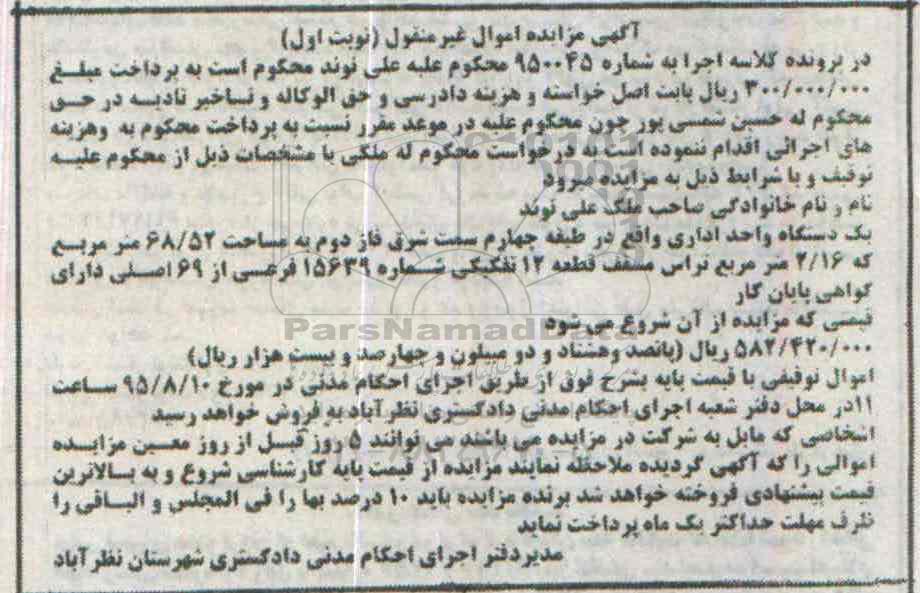 آگهی مزایده اموال غیر منقول (نوبت اول)
در پرونده کلاسه اجرا به شماره ۹۵۰۰۴۵ محکوم علیه علی نوند محکوم است به پرداخت مبلغ
۳۰۰/۰۰۰/۰۰۰ ریال بابت اصل خواسته و هزینه دادرسی و حق الوکاله و تاخیر تادیه در حق
محکوم له حسین شمسی پور چون محکوم علیه در موعد مقرر نسبت به پرداخت محکوم به وهزینه
های اجرائی اقدام ننموده است به درخواست محکوم له ملکی با مشخصات ذیل از محکوم علیه
توقیف و با شرایط ذیل به مزایده میرود
نام و نام خانوادگی صاحب ملک علی نوند
یک دستگاه واحد اداری واقع در طبقه چهارم سمت شرق فاز دوم به مساحت ۶۸/۵۲ متر مربع
که ۲/۱۶ متر مربع تراس مسقف قطعه ۱۲ تفکیکی شماره ۱۵۶۳۹ فرعی از ۶۹ اصلی دارای
گواهی پایان کار
قیمتی که مزایده از آن شروع می شود
ParsNamadData
۵۸۲/۴۲۰/۰۰۰ ریال (پانصد وهشتاد و دو میلیون و چهارصد و بیست هزار ریال)
اموال توقیفی با قیمت پایه بشرح فوق از طریق اجرای احکام مدنی در مورخ ۹۵/۸/۱۰ ساعت
۱۱در محل دفتر شعبه اجرای احکام مدنی دادگستری نظر آباد به فروش خواهد رسید
اشخاصی که مایل به شرکت در مزایده می باشند می توانند ۵ روز قبل از روز معین مزایده
اموالی را که آگهی گردیده ملاحظه نمایند مزایده از قیمت پایه کارشناسی شروع و به بالاترین
قیمت پیشنهادی فروخته خواهد شد برنده مزایده باید ۱۰ درصد بها را فی المجلس و الباقی را
ظرف مهلت حداکثر یک ماه پرداخت نماید
مدیردفتر اجرای احکام مدنی دادگستری شهرستان نظر آباد